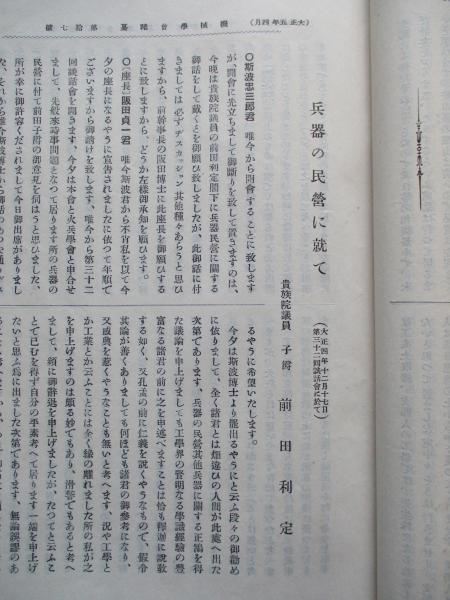 (大正五年四月)
機械學會雜誌 第拾七號
兵器の民營に就て
(大正四年十二月十七日
第三十二回談話會に於て)
貴族院議員 子爵 前田利定
○斯波忠三郎君 唯今から開會することに致します
が、開會に先立ちまして御斷りを致して置きますのは、
今晩は貴族院議員の前田利定閣下に兵器民營に關する
御話をして戴くとを御願ひ致しましたが、此御話に付
きましては必ずヂスカッション其他種々あらうと思ひ
ますから、前幹事長の阪田博士に此座長を御願ひする
とに致しますから、どうか左樣御承知を願ひます。
○(座長)阪田貞一君 唯今斯波君から不肖私を以て今
夕の座長になるやうに宣告されましたに依つて年順で
ございますから御請けを致します、唯今から第三十二
回談話會を開きます、今夕は本會と火兵學會と申合せ
まして、先般來時事問題となつて居ります所の兵器の
民營に付て前田子爵の御意見を伺はうと思ひました、
所が幸に御許容くだされまして今日御出席がありまし
た、それから唯今斯波博士から御話のあつた通り
るやうに希望いたします。
今夕は斯波博士より罷出るやうにと云ふ段々の御勸め
に依りまして、全く諸君とは畑違ひの人間が此處へ出た
次第であります、兵器の民營其他兵器に關する正鵠を得
た議論を申上げましても工學界の賢明なる學識經驗の豐
富なる諸君の前に之を申述べますことは恰も釋迦に說敎
する如く、又孔孟の前に仁義を說くやうなもので、假令
其論が善くありましても何ほども諸君の御參考になり、
又感興を惹くやうなことも無いと考へます、況や工學と
か工業とか云ふことには全く緣の離れました所の私が之
を申上げますのは頗る妙でもあり、滑稽でもあると考へ
まして、頻に御辭退を申上げましたが、たつてと云ふこ
とで已むを得ず自分の平素考へて居ります一端を申上げ
たいと思ふ爲に出ました次第であります、無論誤謬のあ